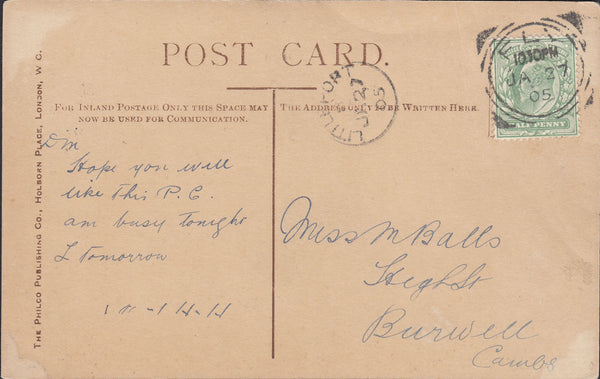 POST CARD.
FOR INLAND POSTAGE ONLY THIS SPACE MAY
NOW BE USED FOR COMMUNICATION.
THE ADDRESS ONLY TO BE WRITTEN HERE.
THE PHILCO PUBLISHING CO., HOLBORN PLACE, LONDON, W.C.
LITTLEPORT
JA 27
05
ELY
1030PM
JA 27
05
HALFPENNY
Hope you will
like this P.C.
am busy tonight
& Tomorrow
Miss M Balls
High St
Burwell
Cambs